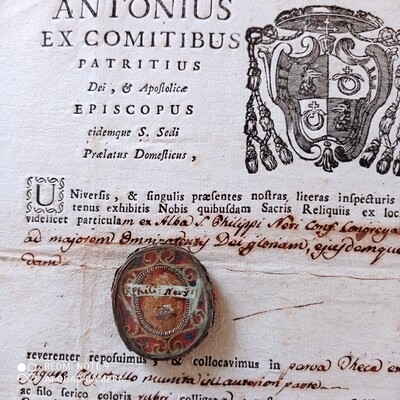 ANTONIUS
EX COMITIBUS
PATRITIUS
Dei, & Apostolicæ
EPISCOPUS
eidemque S. Sedi
Prælatus Domesticus,
UNiversis, & singulis præsentes nostras literas inspecturis
tenus exhibitis Nobis quibusdam Sacris Reliquiis ex loc
videlicet particulam ex Alba S. Philippi Neri Conf. Congrega
ad majorem Omnipotentis Dei gloriam, ejusdemque
dam
S. Phili. Nerij.
reverenter reposuimus, & collocavimus in parva theca ex
figuræ Crystallo munita in anteriori parte
ac filo serico coloris rubri colligat
REDMI NOTE 9
AI QUAD CAMERA